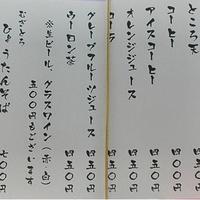 ところ天
コーヒー 四〇〇円
アイスコーヒー 四五〇円
オレンジジュース 四五〇円
コーラ 四五〇円
グレープフルーツジュース 四五〇円
ウーロン茶 四五〇円
※生ビール、グラスワイン(赤・白)
五〇〇円もございます
むぎとろ
ひょうたんそば 七〇〇円